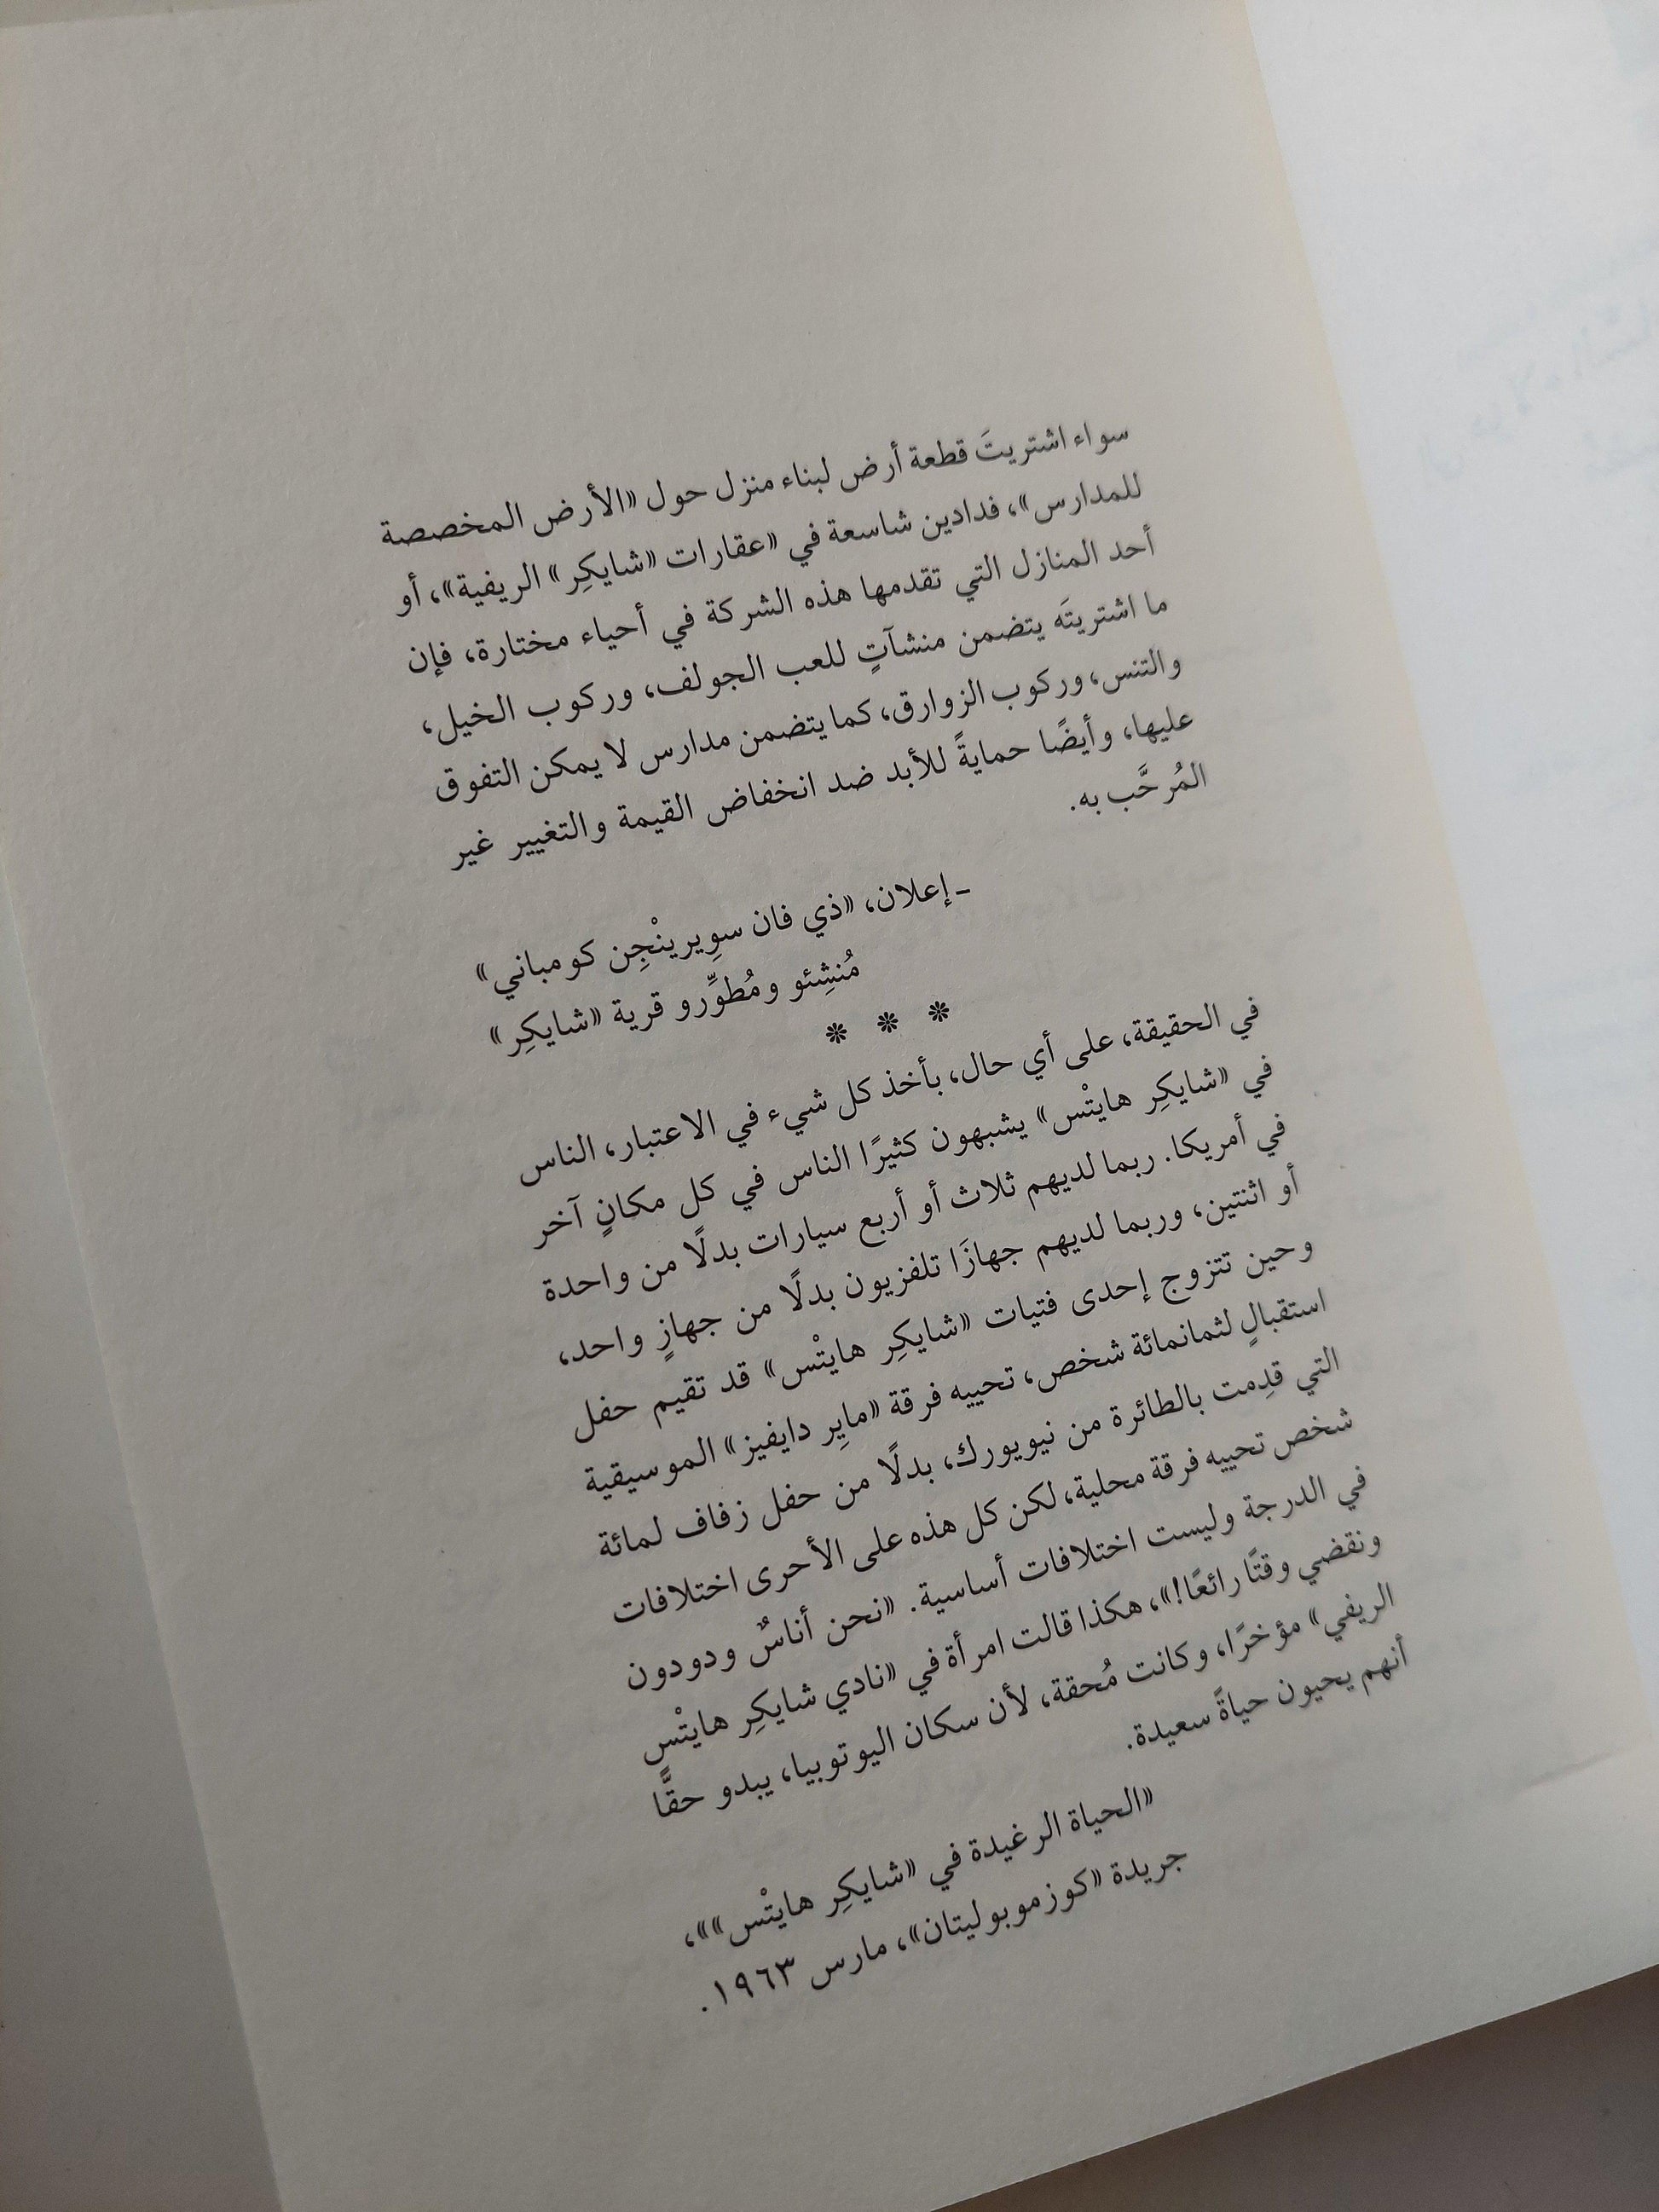 سواء اشتريتَ قطعة أرض لبناء منزل حول «الأرض المخصصة
للمدارس»، فدادين شاسعة في «عقارات «شايكِر» الريفية»، أو
أحد المنازل التي تقدمها هذه الشركة في أحياء مختارة، فإن
ما اشتريتَه يتضمن منشآتٍ للعب الجولف، وركوب الخيل،
والتنس، وركوب الزوارق، كما يتضمن مدارس لا يمكن التفوق
عليها، وأيضًا حمايةً للأبد ضد انخفاض القيمة والتغيير غير
المُرحَّب به.
-إعلان، «ذي فان سوِيرينْجِن كومباني»
مُنشِئو ومُطوِّرو قرية «شايكِر»
* * *
في الحقيقة، على أي حال، بأخذ كل شيء في الاعتبار، الناس
في «شايكِر هايتْس» يشبهون كثيرًا الناس في كل مكانٍ آخر
في أمريكا. ربما لديهم ثلاث أو أربع سيارات بدلًا من واحدة
أو اثنتين، وربما لديهم جهازَا تلفزيون بدلًا من جهازٍ واحد،
وحين تتزوج إحدى فتيات «شايكِر هايتْس» قد تقيم حفل
استقبالٍ لثمانمائة شخص، تحييه فرقة «مايِر دايفيز» الموسيقية
التي قدِمت بالطائرة من نيويورك، بدلًا من حفل زفاف لمائة
شخص تحييه فرقة محلية، لكن كل هذه على الأحرى اختلافات
في الدرجة وليست اختلافات أساسية. «نحن أناسٌ ودودون
ونقضي وقتًا رائعًا!»، هكذا قالت امرأة في «نادي شايكِر هايتْسٍ
الريفي» مؤخرًا، وكانت مُحقة، لأن سكان اليوتوبيا، يبدو حقًّا
أنهم يحيون حياةً سعيدة.
«الحياة الرغيدة في «شايكِر هايتْس»»،
جريدة «كوزموبوليتان»، مارس ١٩٦٣.